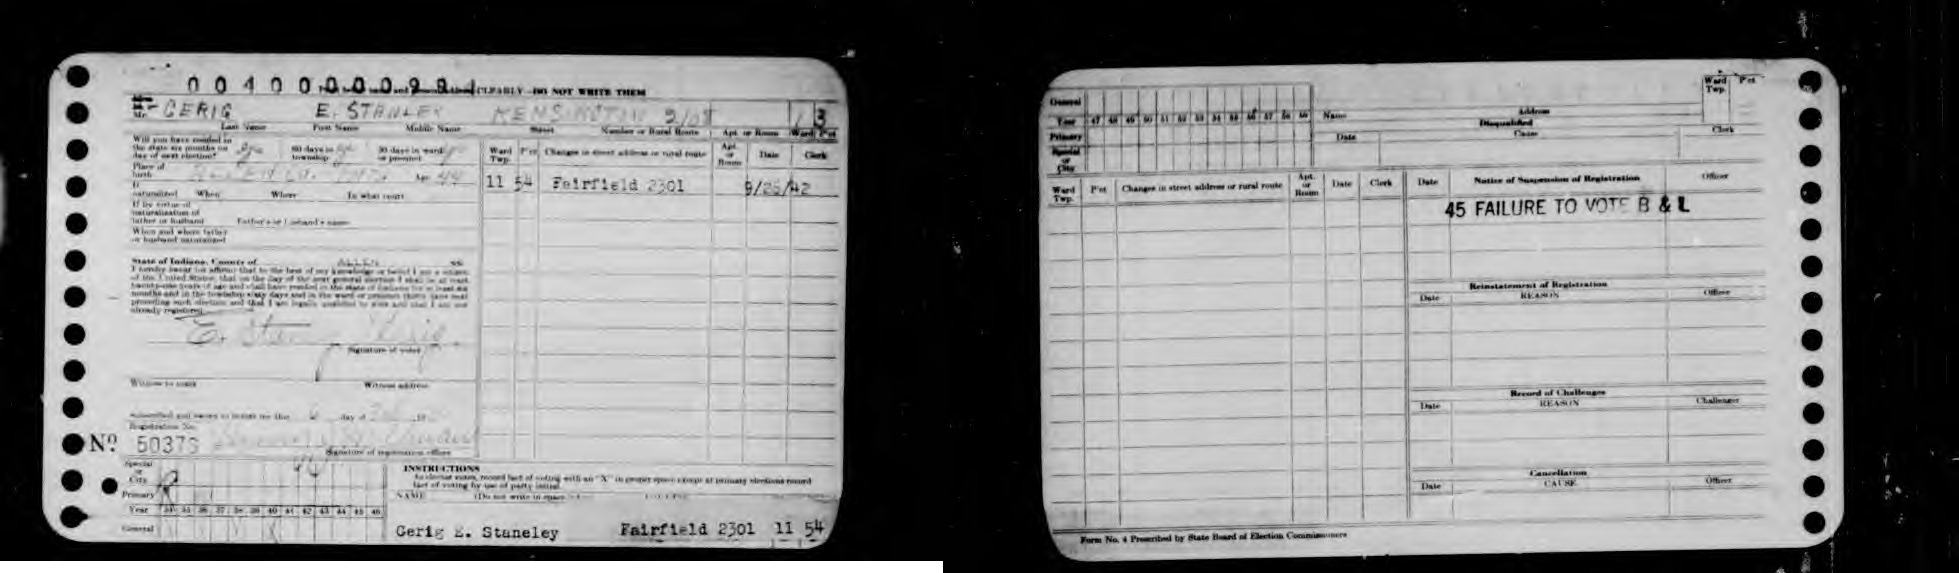 0040000099
CLEARLY—DO NOT WRITE THEM
Mr. GERIG E. STANLEY KENSINGTON 2108 3
Last Name First Name Middle Name Street Number or Rural Route Apt. or Room Ward P'ct
Will you have resided in
the state six months on 60 days in 30 days in ward
day of next election? township or precinct
Place of
birth Age 44
If
naturalized When Where In what court
If by virtue of
naturalization of
father or husband Father's or husband's name
When and where father
or husband naturalized
Ward Twp. P'ct Changes in street address or rural route Apt. or Room Date Clerk
11 54 Fairfield 2301 9/25/42
State of Indiana, County of ALLEN SS
I hereby swear (or affirm) that to the best of my knowledge or belief I am a citizen
of the United States, that on the day of the next general election I shall be at least
twenty-one years of age and shall have resided in the state of Indiana for at least six
months and in the township sixty days and in the ward or precinct thirty days next
preceding such election and that I am legally qualified to vote and that I am not
already registered.
E. Stanley Gerig
Signature of voter
Witness to mark Witness address
Subscribed and sworn to before me this day of 19
Registration No.
No. 50373
Signature of registration officer
Special
or
City
Primary
Year 34 35 36 37 38 39 40 41 42 43 44 45 46
General
INSTRUCTIONS
At election dates, record fact of voting with an "X" in proper space except at primary elections record
fact of voting by use of party initial.
NAME (Do not write in space
Gerig E. Staneley Fairfield 2301 11 54
Ward Twp. P'ct
General
Year 47 48 49 50 51 52 53 54 55 56 57 58 59
Primary
Special
or
City
Name Address
Disqualified
Date Cause Clerk
Ward Twp. P'ct Changes in street address or rural route Apt. or Room Date Clerk
Date Notice of Suspension of Registration Officer
45 FAILURE TO VOTE B & L
Reinstatement of Registration
Date REASON Officer
Record of Challenges
Date REASON Challenger
Cancellation
Date CAUSE Officer
Form No. 4 Prescribed by State Board of Election Commissioners